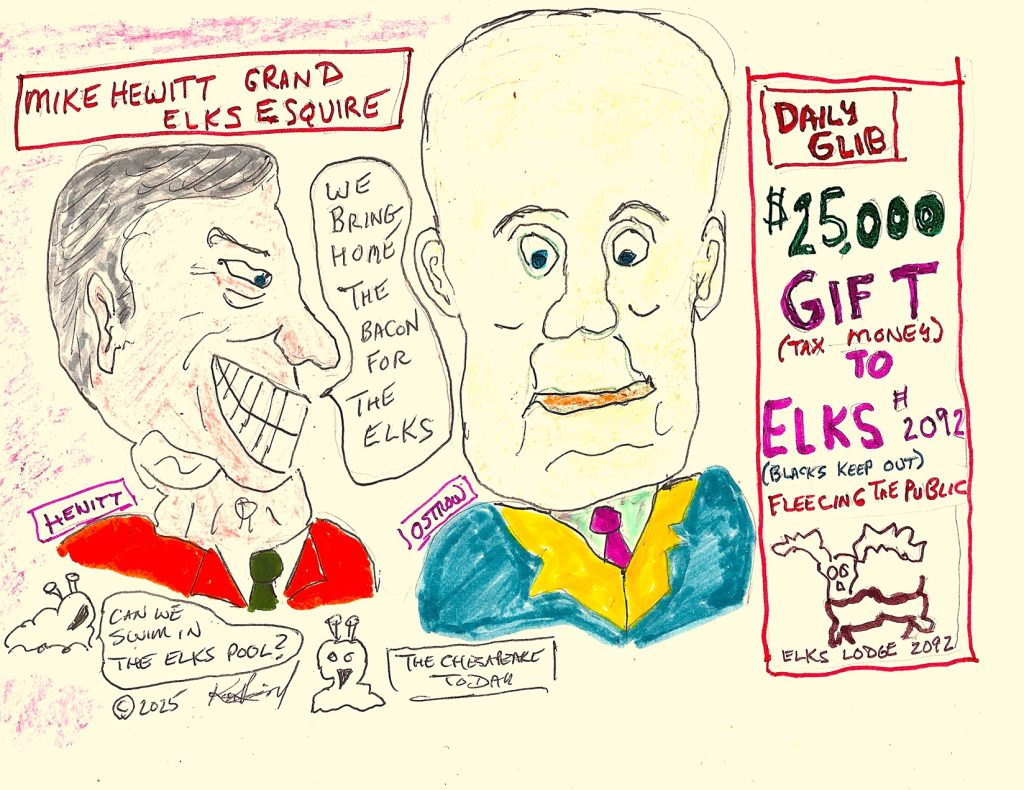 MIKE HEWITT GRAND
ELKS ESQUIRE
WE
BRING
HOME
THE
BACON
FOR
THE
ELKS
HEWITT
OSTROW
DAILY
GLIB
$25,000
GIFT
(TAX MONEY)
TO
ELKS #
2092
(BLACKS KEEP OUT)
FLEECING THE PUBLIC
ELKS LODGE 2092
CAN WE
SWIM IN
THE ELKS POOL?
© 2025
THE CHESAPEAKE
TODAY